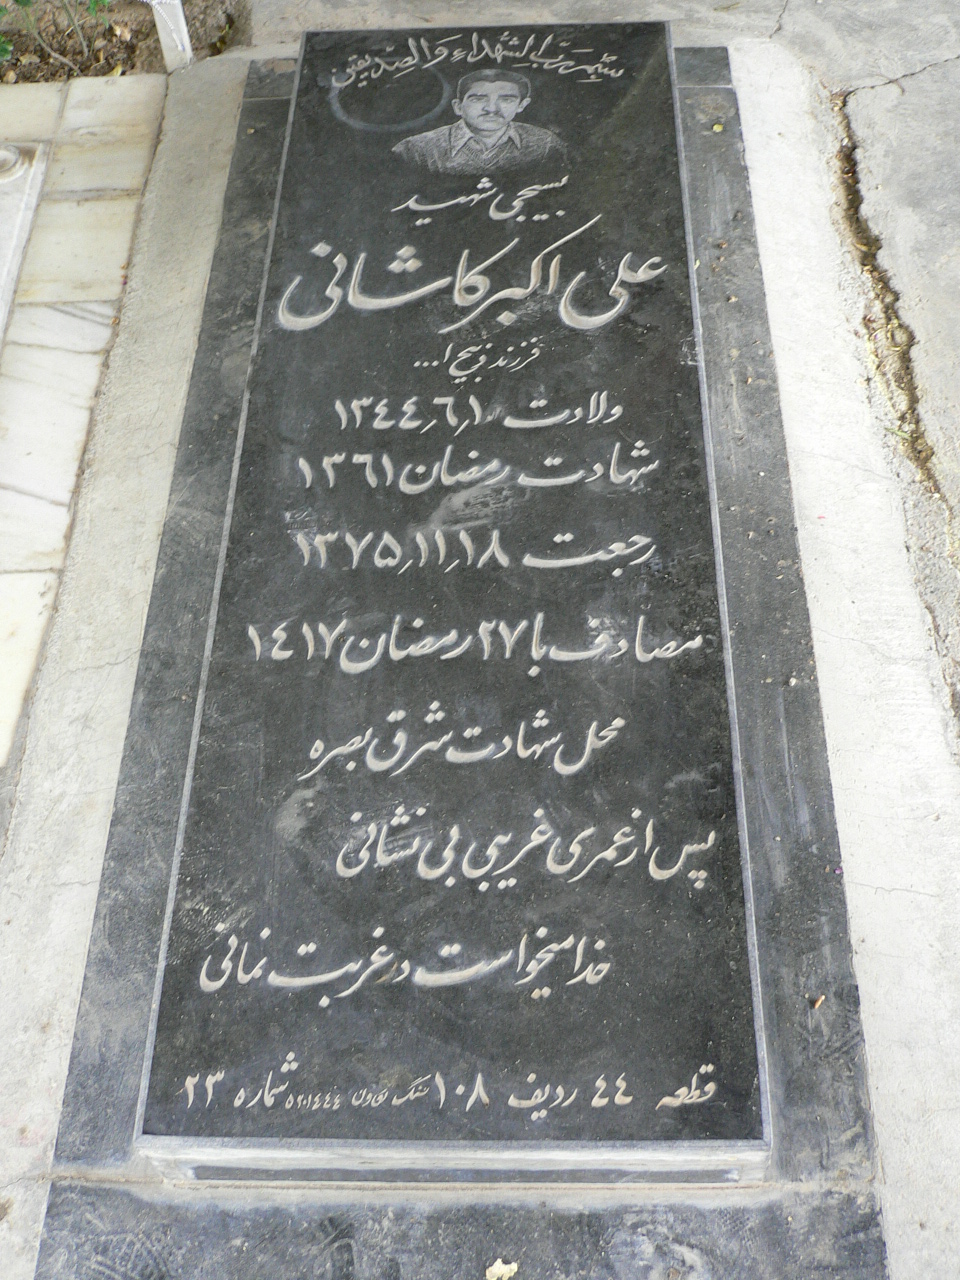 بسم رب الشهداء والصدیقین
بسیجی شهید
علی اکبر کاشانی
فرزند ذبیح ا...
ولادت ۱٫۶٫۱۳۴۴
شهادت رمضان ۱۳۶۱
رجعت ۱۸٫۱۱٫۱۳۷۵
مصادف با ۲۷ رمضان ۱۴۱۷
محل شهادت شرق بصره
پس از عمری غریبی بی نشانی
خدا میخواست در غربت نمانی
قطعه ۴۴ ردیف ۱۰۸ سنگ تعاون ۵۲۰۱۴۴۴ شماره ۲۳